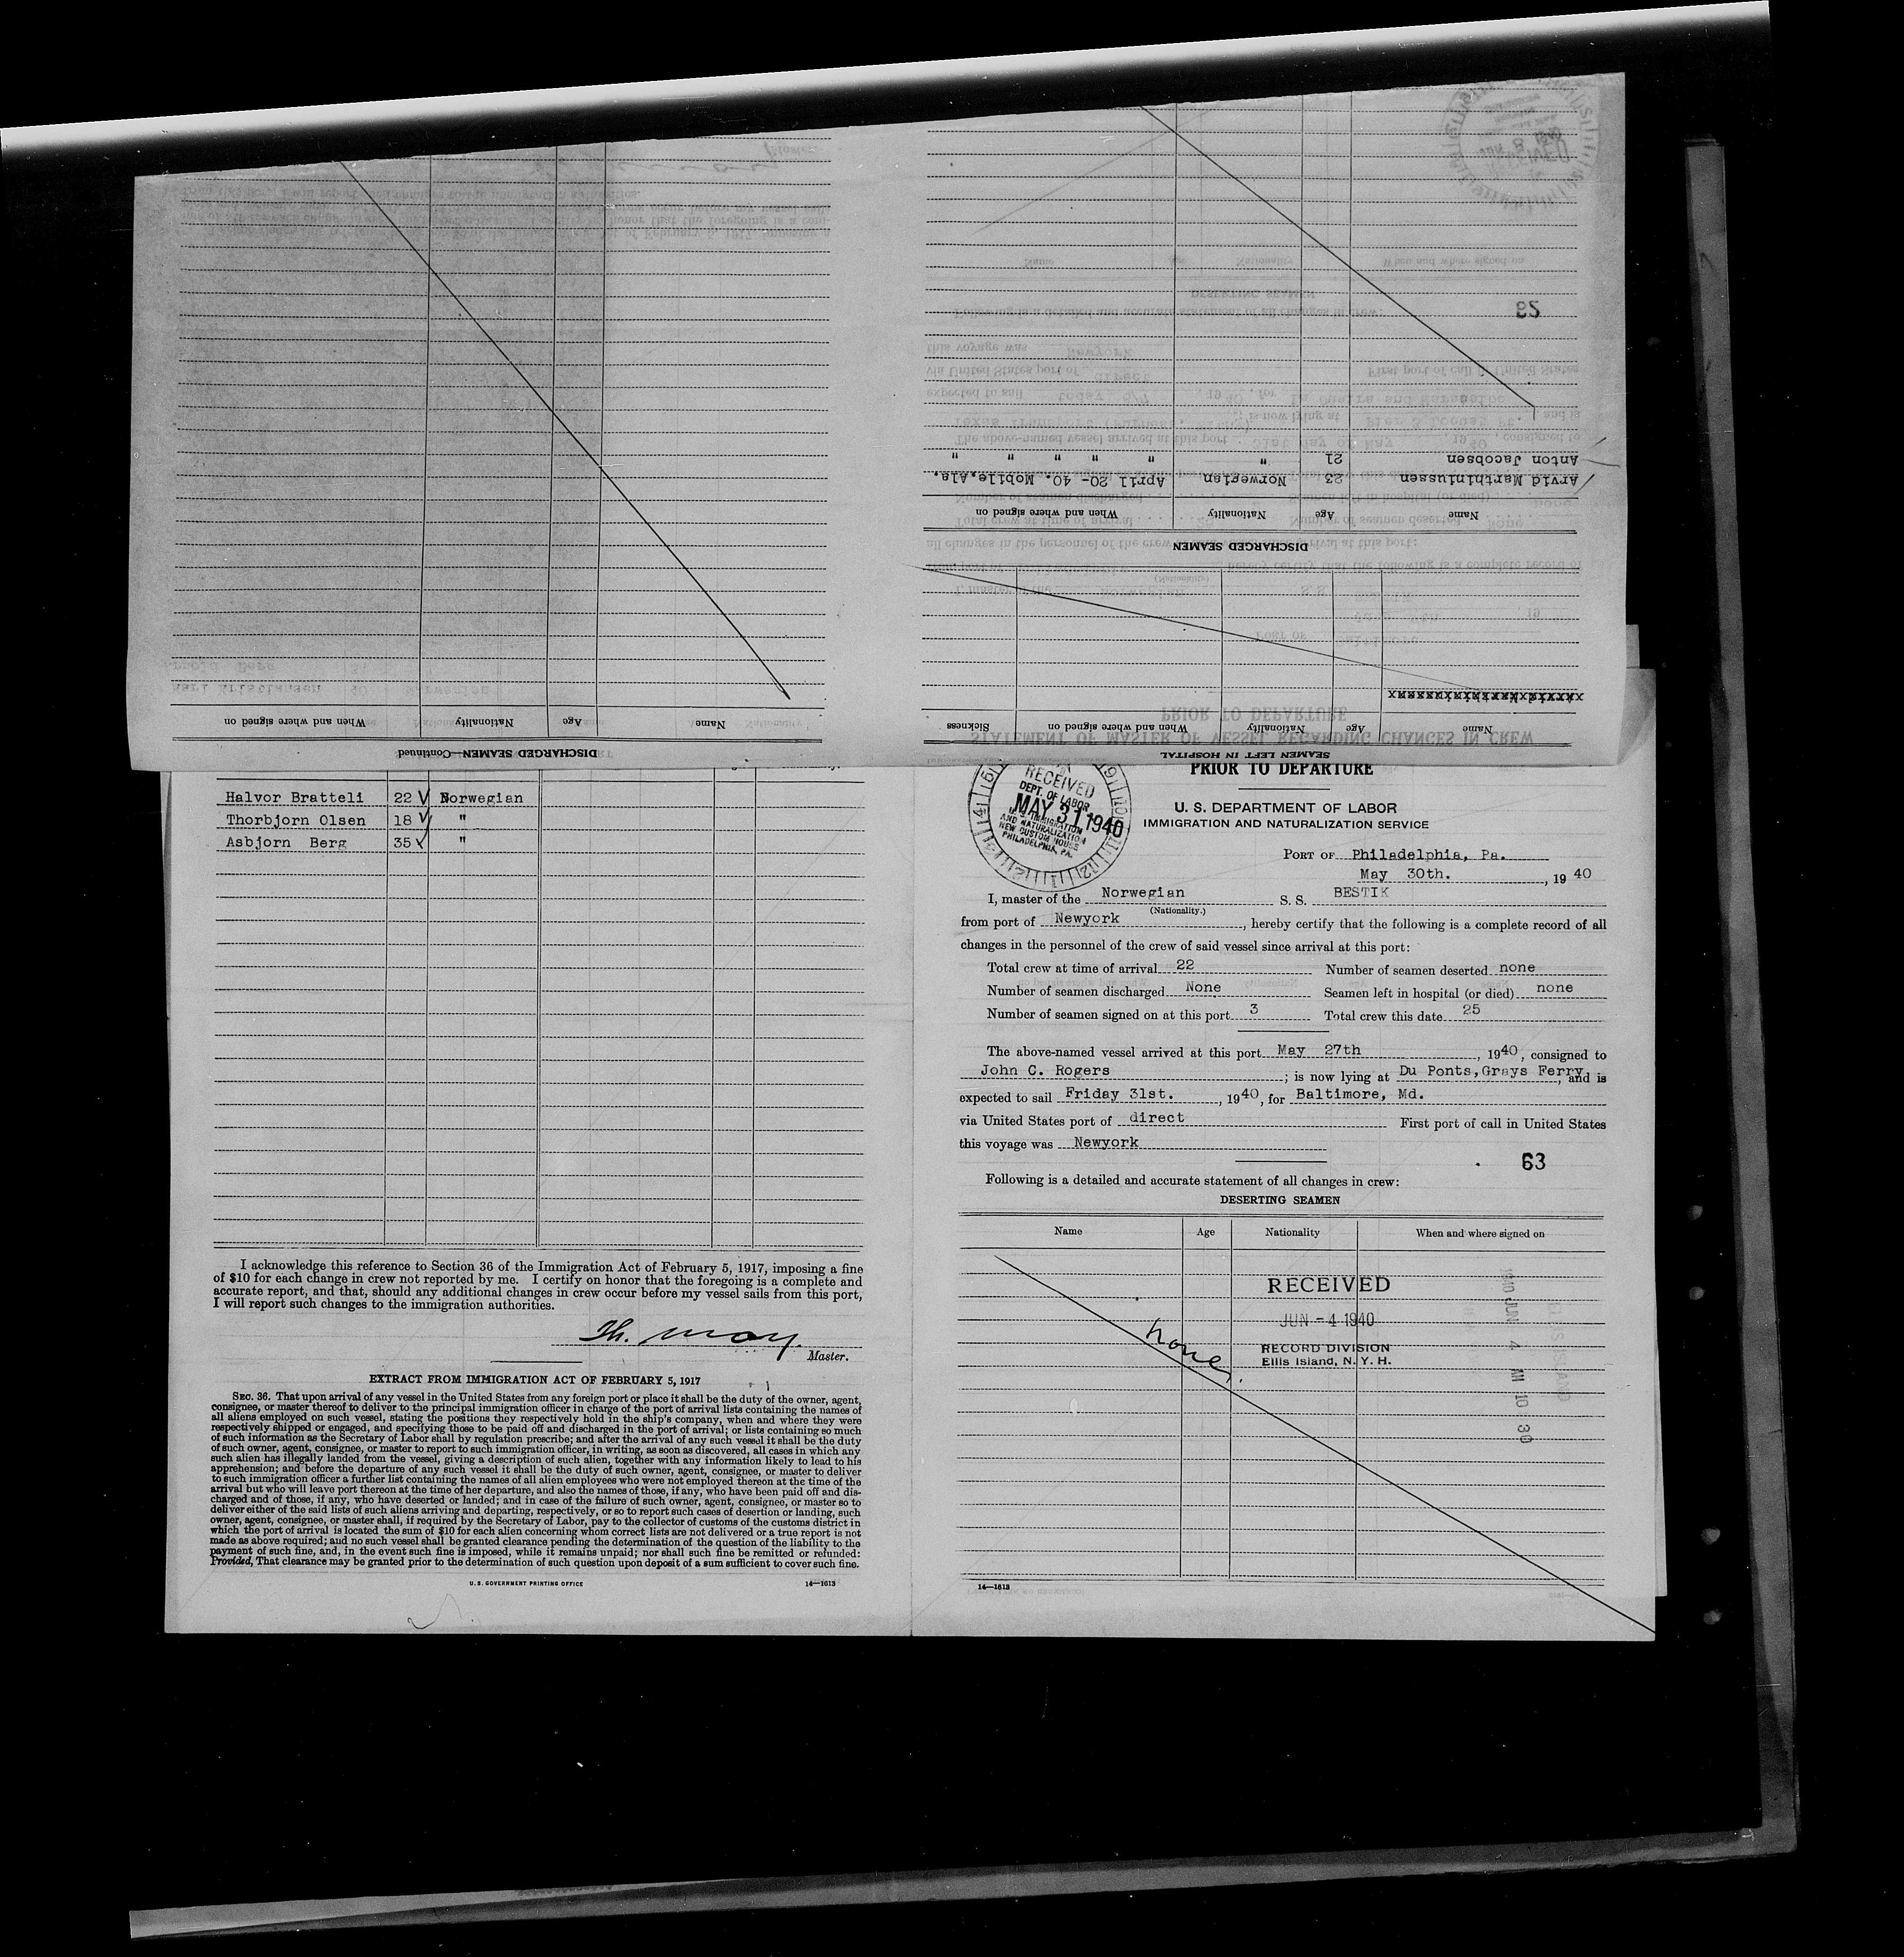 DISCHARGED SEAMEN—Continued
Name Age Nationality When and where signed on
SEAMEN LEFT IN HOSPITAL
Name Age Nationality When and where signed on Sickness
DISCHARGED SEAMEN
Name Age Nationality When and where signed on
Arvid Marthiniussen 23 Norwegian April 20- 40. Mobile,Ala.
Anton Jacobsen 21 " " " " " "
62
Halvor Bratteli 22 V Norwegian
Thorbjorn Olsen 18 V "
Asbjorn Berg 35 ✓ "
I acknowledge this reference to Section 36 of the Immigration Act of February 5, 1917, imposing a fine
of $10 for each change in crew not reported by me. I certify on honor that the foregoing is a complete and
accurate report, and that, should any additional changes in crew occur before my vessel sails from this port,
I will report such changes to the immigration authorities.
Th. May.
Master.
EXTRACT FROM IMMIGRATION ACT OF FEBRUARY 5, 1917
SEC. 36. That upon arrival of any vessel in the United States from any foreign port or place it shall be the duty of the owner, agent,
consignee, or master thereof to deliver to the principal immigration officer in charge of the port of arrival lists containing the names of
all aliens employed on such vessel, stating the positions they respectively hold in the ship's company, when and where they were
respectively shipped or engaged, and specifying those to be paid off and discharged in the port of arrival; or lists containing so much
of such information as the Secretary of Labor shall by regulation prescribe; and after the arrival of any such vessel it shall be the duty
of such owner, agent, consignee, or master to report to such immigration officer, in writing, as soon as discovered, all cases in which any
such alien has illegally landed from the vessel, giving a description of such alien, together with any information likely to lead to his
apprehension; and before the departure of any such vessel it shall be the duty of such owner, agent, consignee, or master to deliver
to such immigration officer a further list containing the names of all alien employees who were not employed thereon at the time of the
arrival but who will leave port thereon at the time of her departure, and also the names of those, if any, who have been paid off and dis-
charged and of those, if any, who have deserted or landed; and in case of the failure of such owner, agent, consignee, or master so to
deliver either of the said lists of such aliens arriving and departing, respectively, or so to report such cases of desertion or landing, such
owner, agent, consignee, or master shall, if required by the Secretary of Labor, pay to the collector of customs of the customs district in
which the port of arrival is located the sum of $10 for each alien concerning whom correct lists are not delivered or a true report is not
made as above required; and no such vessel shall be granted clearance pending the determination of the question of the liability to the
payment of such fine, and, in the event such fine is imposed, while it remains unpaid; nor shall such fine be remitted or refunded:
Provided, That clearance may be granted prior to the determination of such question upon deposit of a sum sufficient to cover such fine.
U. S. GOVERNMENT PRINTING OFFICE 14—1613
PRIOR TO DEPARTURE
RECEIVED
DEPT. OF LABOR
MAY 31 1940
IMMIGRATION
AND NATURALIZATION
NEW CUSTOM HOUSE
PHILADELPHIA, PA.
U. S. DEPARTMENT OF LABOR
IMMIGRATION AND NATURALIZATION SERVICE
PORT OF Philadelphia, Pa.
May 30th. , 19 40
I, master of the Norwegian S. S. BESTIK
(Nationality.)
from port of Newyork , hereby certify that the following is a complete record of all
changes in the personnel of the crew of said vessel since arrival at this port:
Total crew at time of arrival 22 Number of seamen deserted none
Number of seamen discharged None Seamen left in hospital (or died) none
Number of seamen signed on at this port 3 Total crew this date 25
The above-named vessel arrived at this port May 27th , 1940, consigned to
John C. Rogers ; is now lying at Du Ponts,Grays Ferry, and is
expected to sail Friday 31st. , 1940, for Baltimore, Md.
via United States port of direct First port of call in United States
this voyage was Newyork
63
Following is a detailed and accurate statement of all changes in crew:
DESERTING SEAMEN
Name Age Nationality When and where signed on
none.
RECEIVED
JUN - 4 1940
RECORD DIVISION
Ellis Island, N. Y. H.
1940 JUN 4 AM 10 30
14—1613